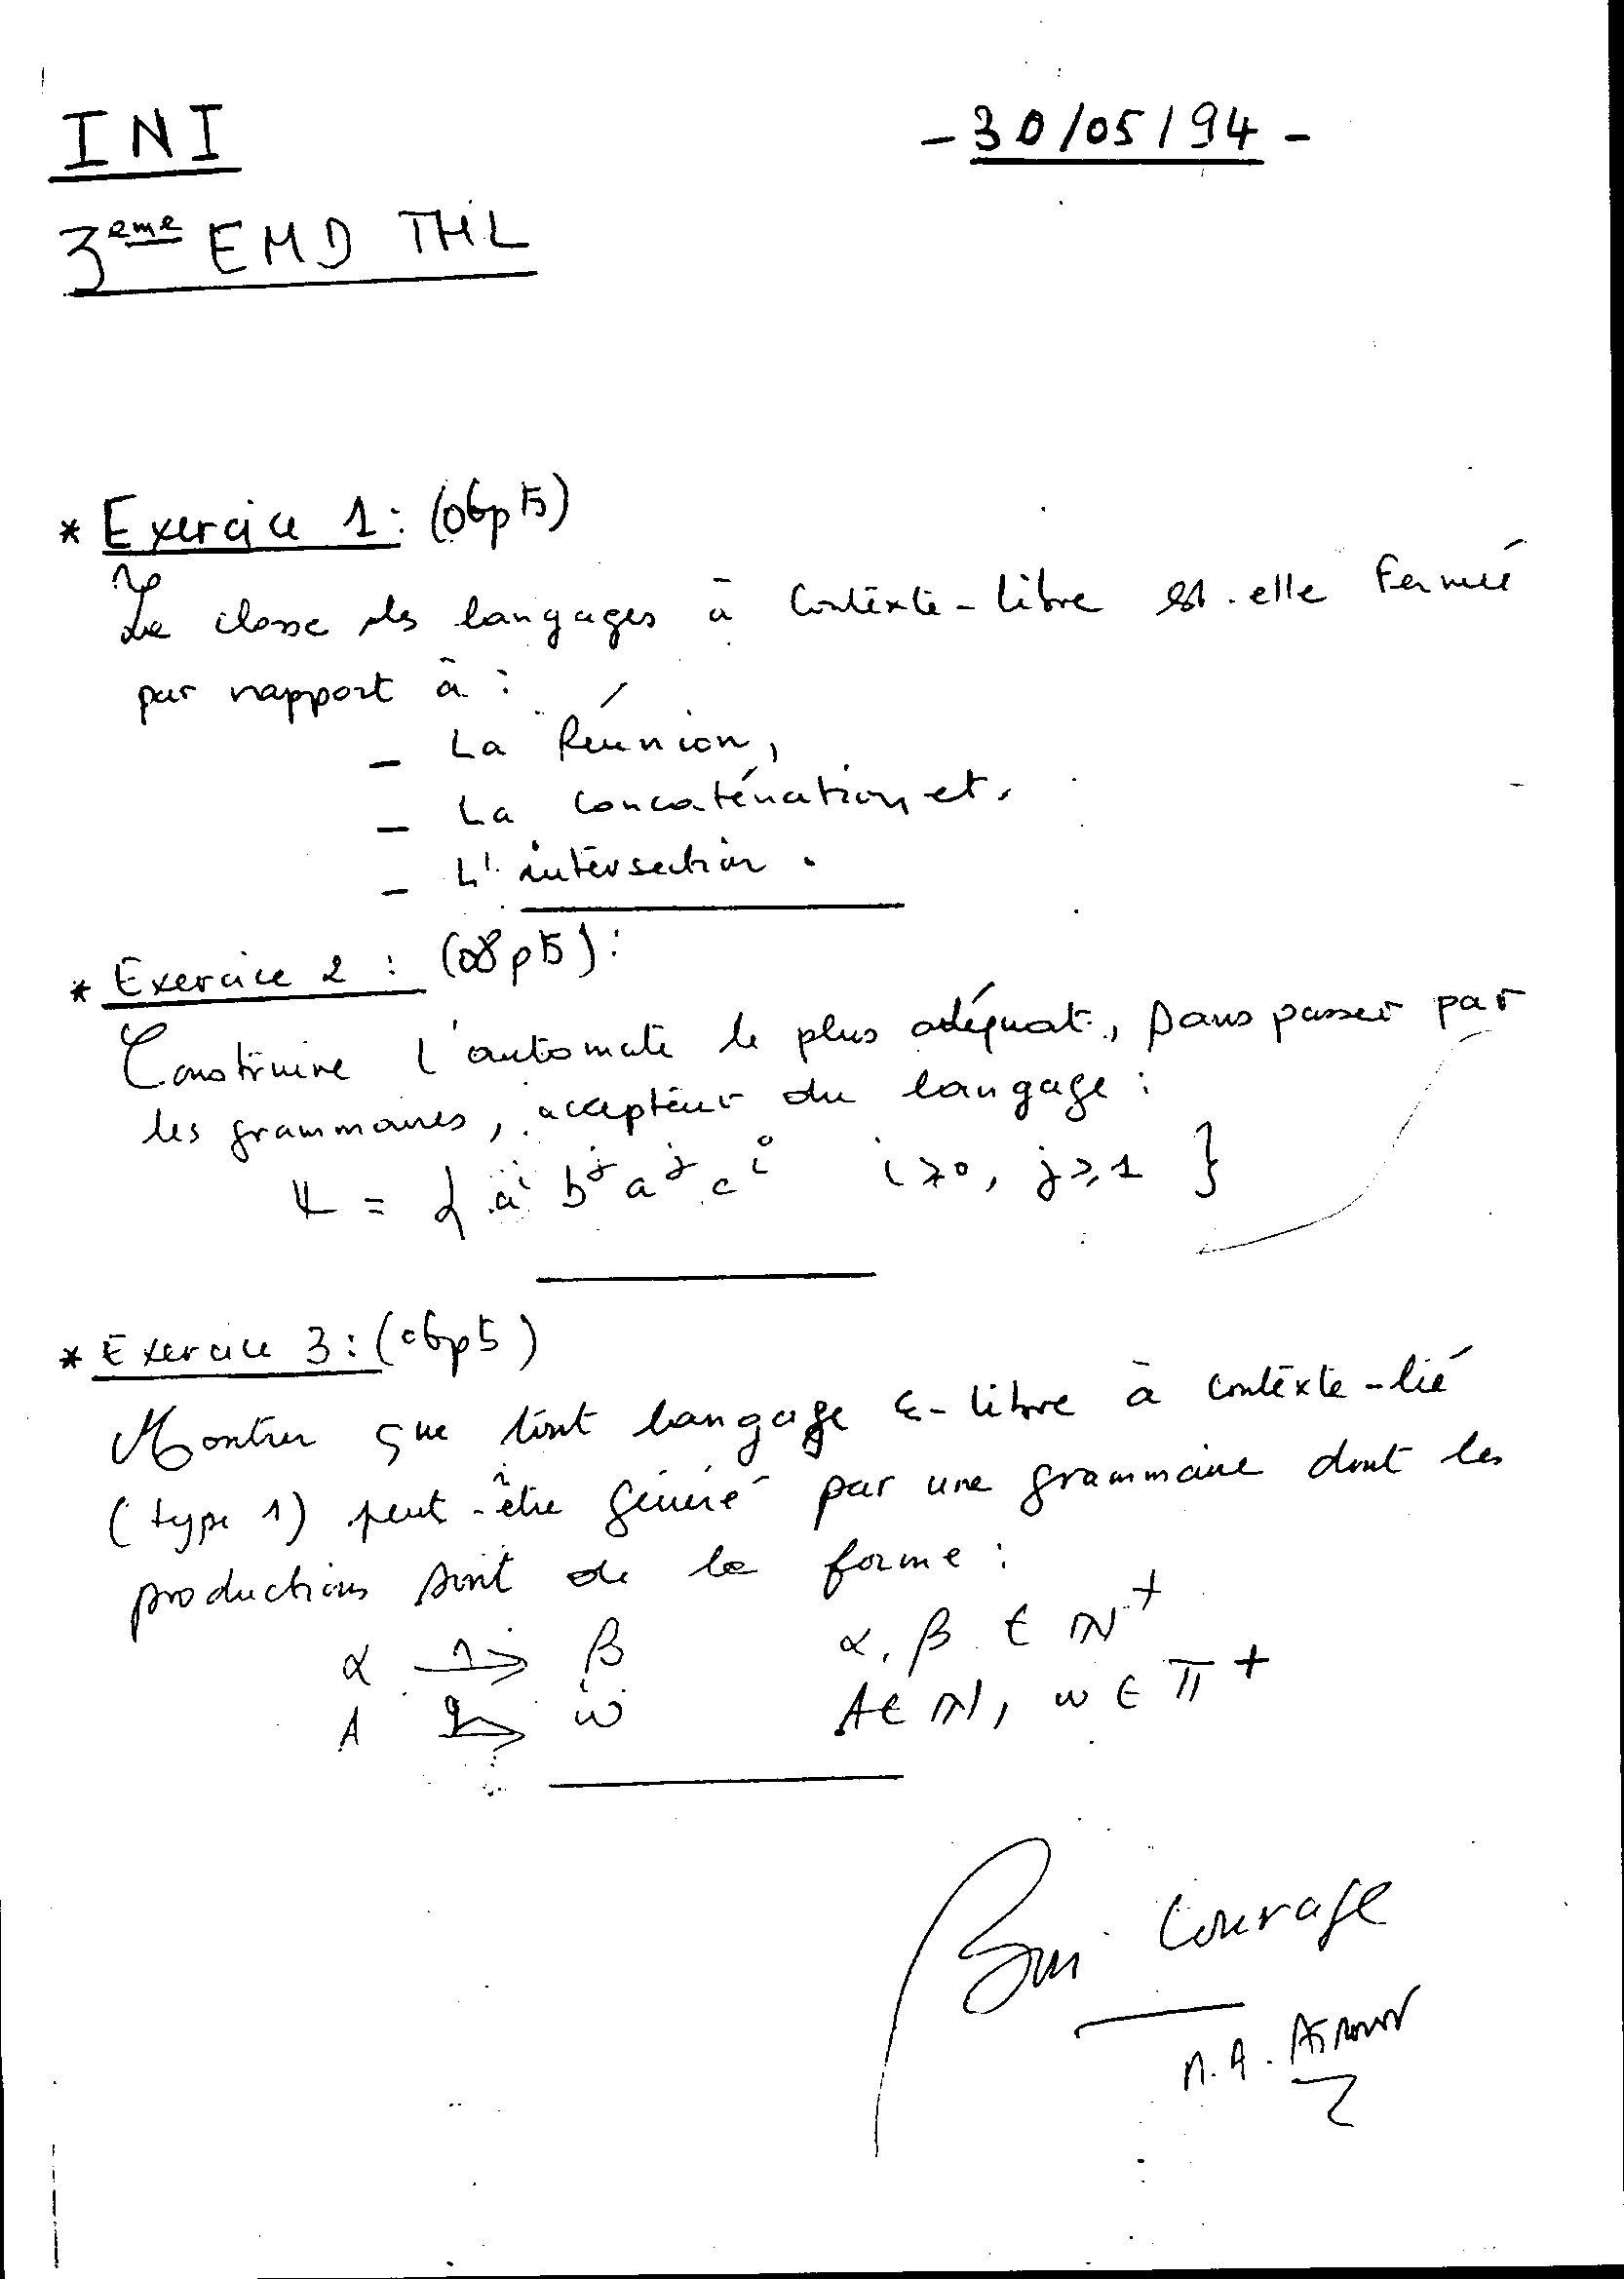 INI
- 30/05/94 -
3eme EMD THL
* Exercice 1 : (06pts)
La classe des langages à contexte-libre est-elle Fermée
par rapport à :
- La Réunion,
- La concaténation et,
- L'intersection.
* Exercice 2 : (08pts) :
Construire l'automate le plus adéquat, sans passer par
les grammaires, accepteur du langage :
L = { a^i b^j a^j c^i i ≥ 0, j ≥ 1 }
* Exercice 3 : (06pts)
Montrer que tout langage ε-libre à contexte-lié
(type 1) peut-être généré par une grammaire dont les
productions sont de la forme :
α 1→ β α, β ∈ N+
A 2→ w A ∈ N, w ∈ T+
Bon Courage